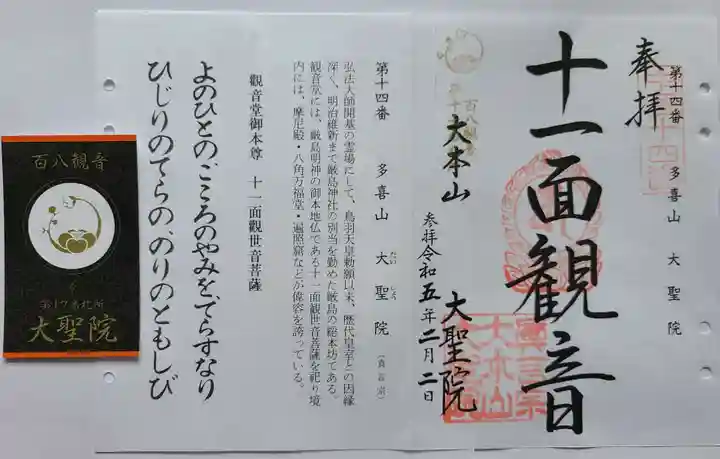 第十四番　多喜山　大聖院
奉拝
十一面観音
大本山
大聖院
参拝令和五年二月二日
百八観音
第十四番　多喜山　大聖院（真言宗）
たい　しょう
弘法大師開基の霊場にして、鳥羽天皇勅願以来、歴代皇室との因縁
深く、明治維新まで厳島神社の別当を勤めた厳島の総本坊である。
観音堂には、厳島明神の御本地仏である十一面観世音菩薩を祀り境
内には、摩尼殿・八角万福堂・遍照窟などが偉容を誇っている。
觀音堂御本尊　十一面觀世音菩薩
よのひとのこころのやみをてらすなり
ひじりのてらの、のりのともしび
百八観音
大聖院